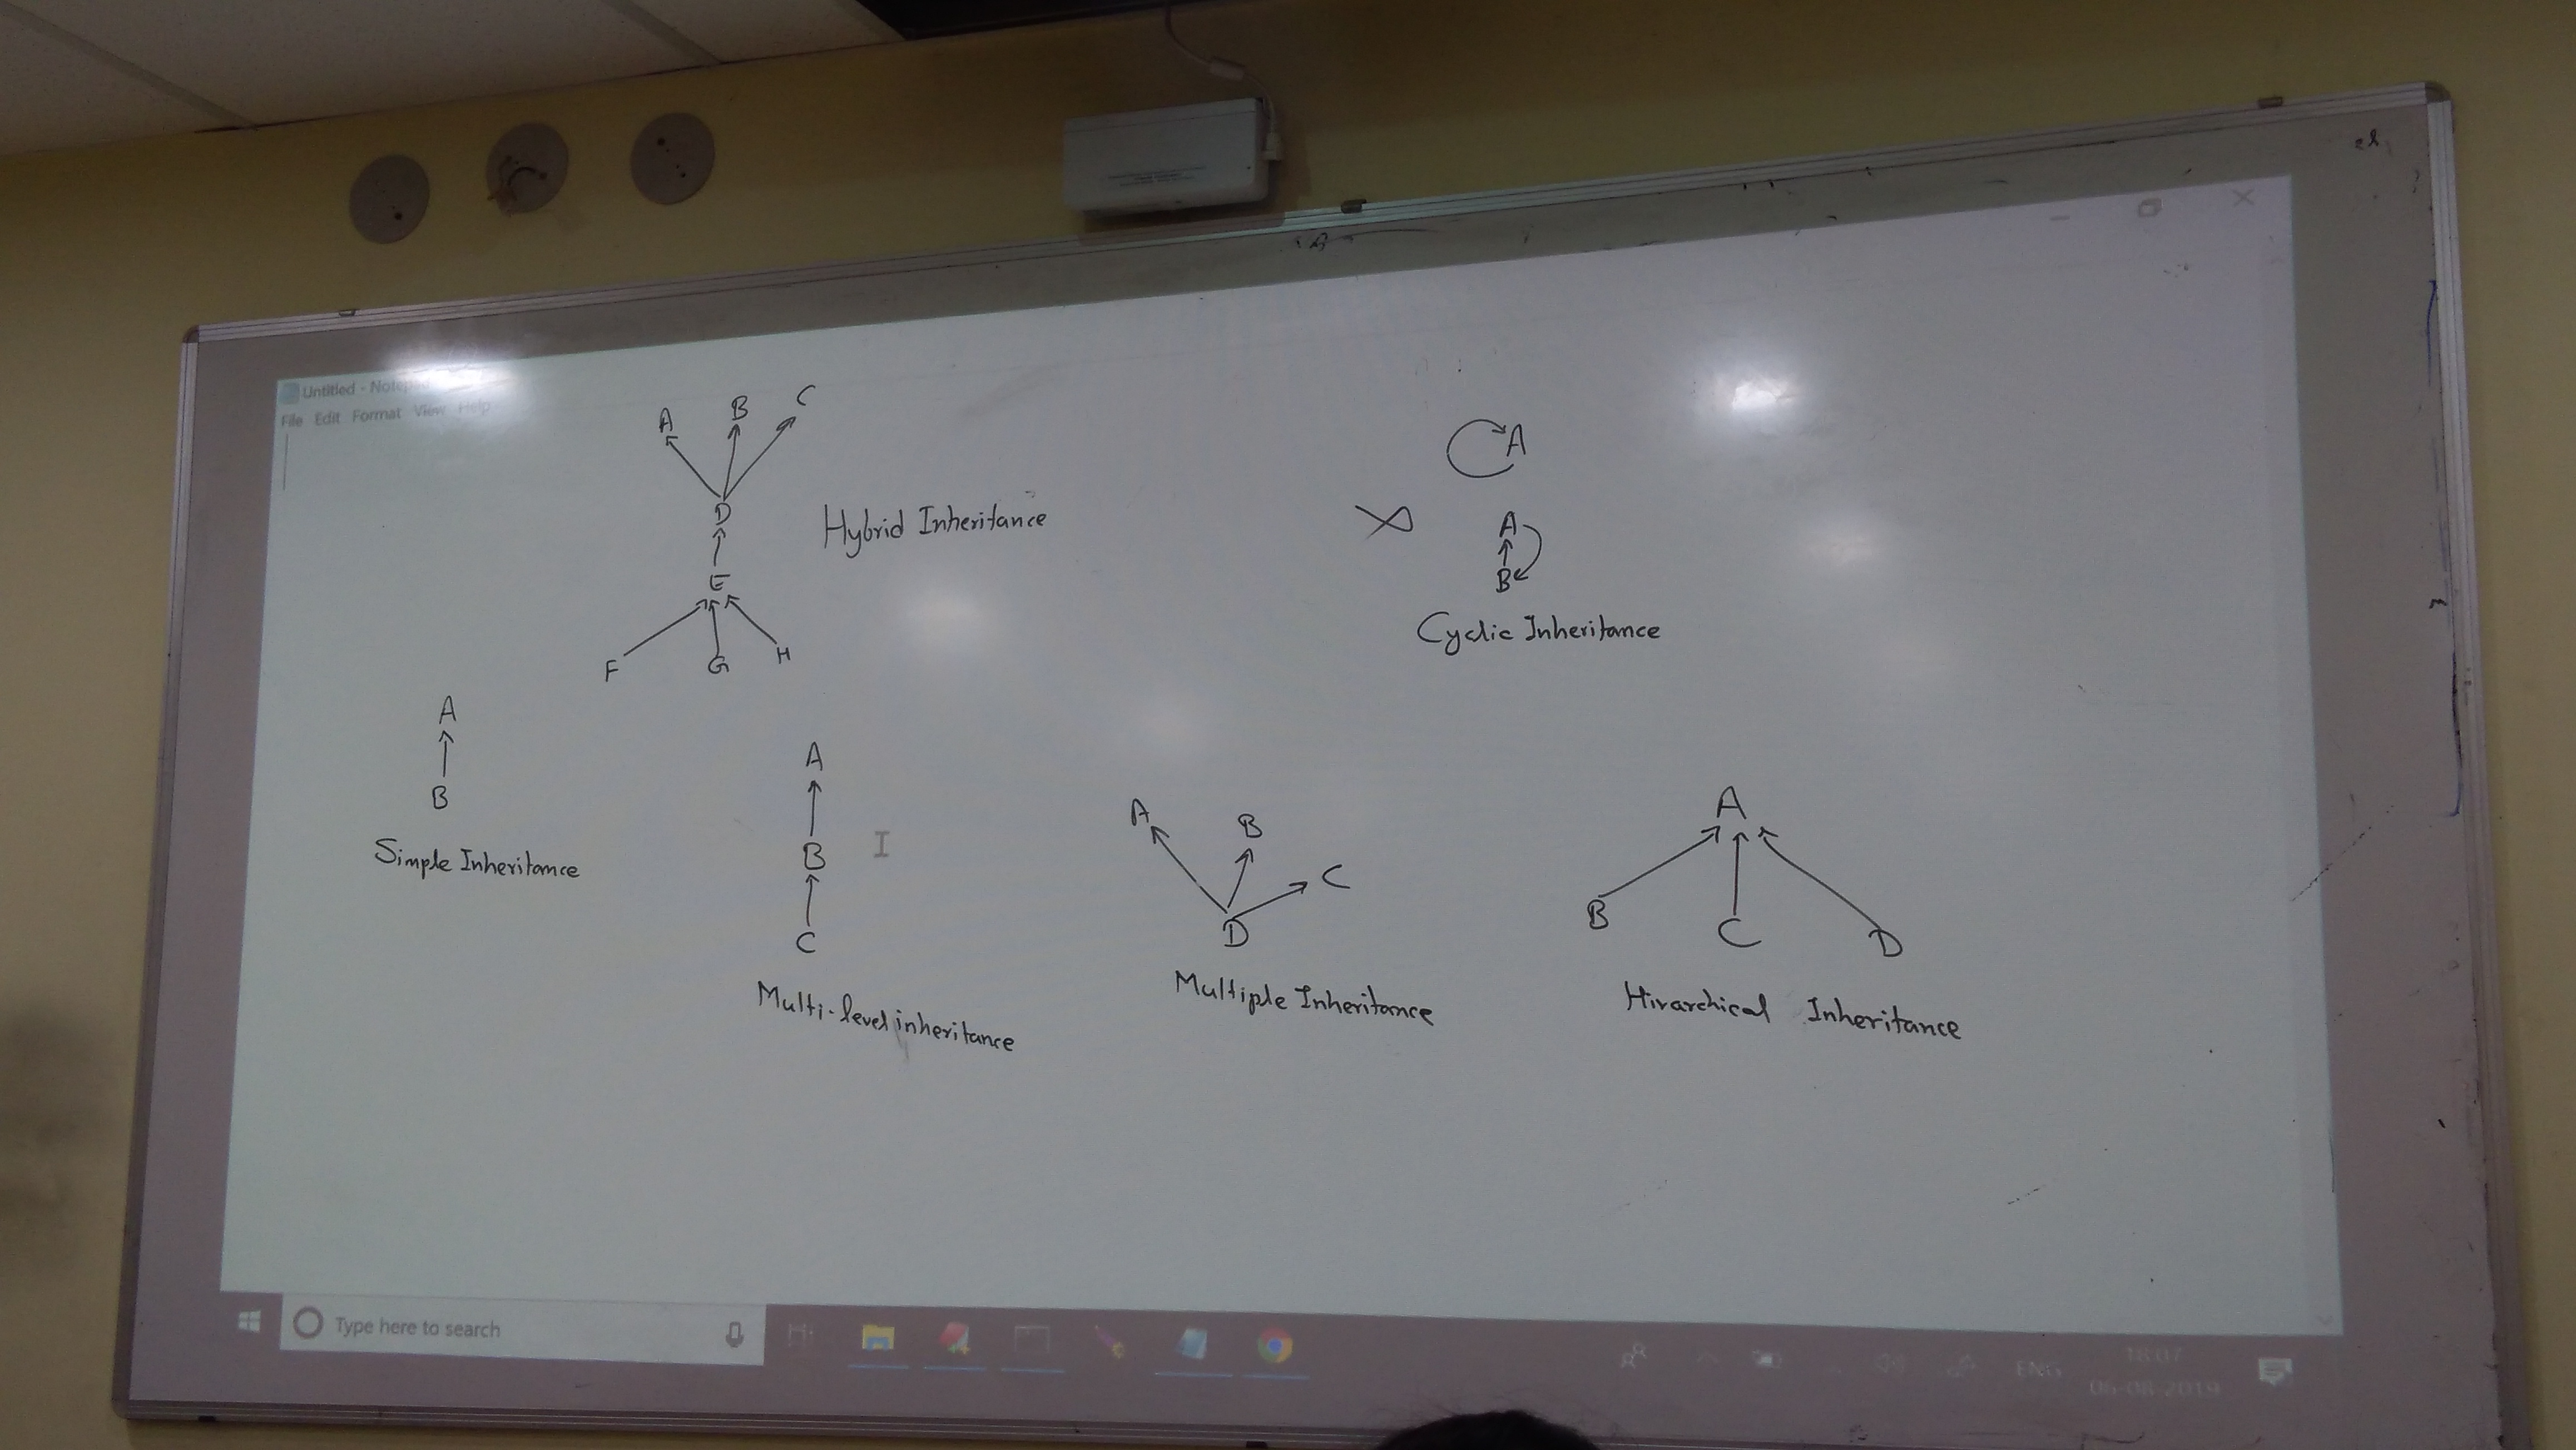 Untitled - Notepad
File Edit Format View Help
A B C
D
E
F G H
Hybrid Inheritance
A
A
B
Cyclic Inheritance
A
B
Simple Inheritance
A
B
C
Multi-level inheritance
A B C
D
Multiple Inheritance
A
B C D
Hirarchical Inheritance
Type here to search
ENG
18:07
06-08-2019